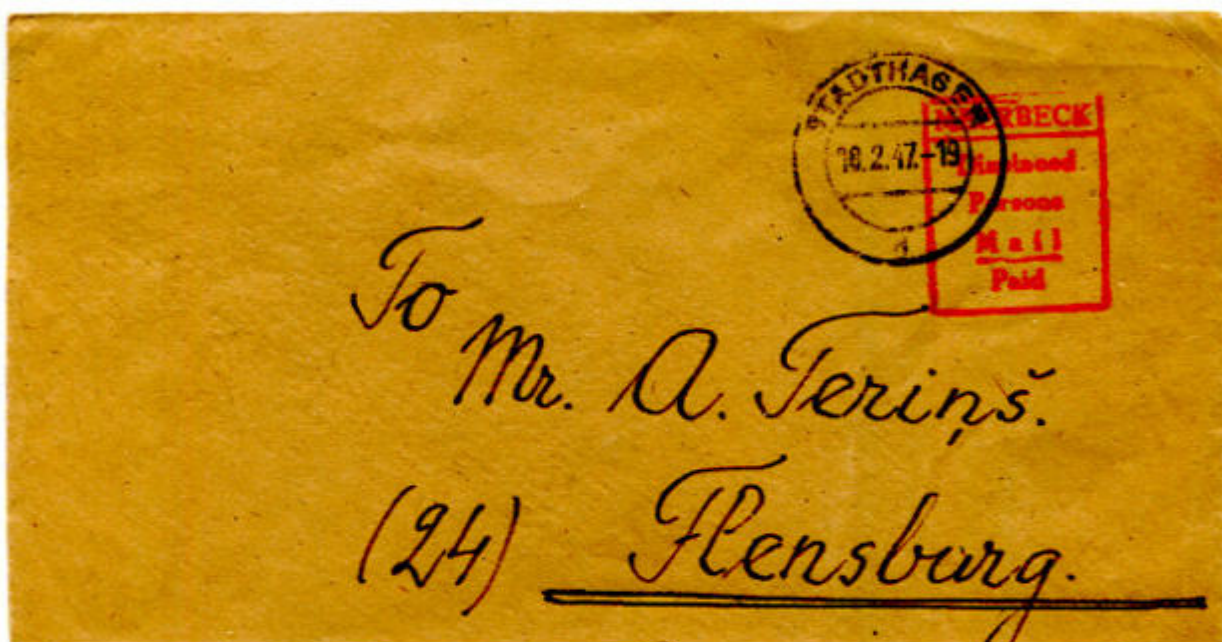 STADTHAGEN
18.2.47.-19
d
MEERBECK
Displaced
Persons
Mail
Paid
To
Mr. A. Teriņš.
(24) Flensburg.